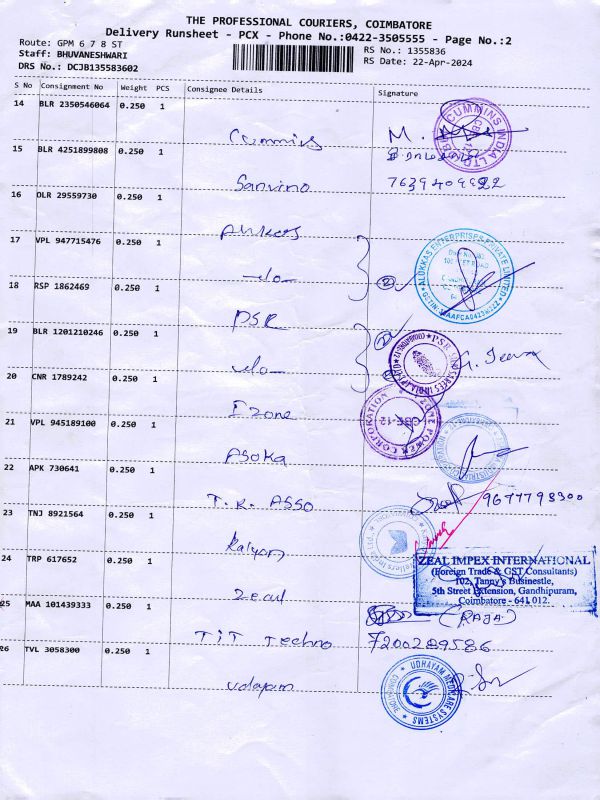 THE PROFESSIONAL COURIERS, COIMBATORE
Delivery Runsheet - PCX - Phone No.:0422-3505555 - Page No.:2
Route: GPM 6 7 8 ST
Staff: BHUVANESHWARI
DRS No.: DCJB135583602
RS No.: 1355836
RS Date: 22-Apr-2024
S No Consignment No Weight PCS Consignee Details Signature
14 BLR 2350546064 0.250 1 Cummins
CUMMINS INDIA LTD
15 BLR 4251899808 0.250 1 Sanvino 7639409922
16 DLR 29559730 0.250 1
17 VPL 947715476 0.250 1 -do-
ALUKKAS ENTERPRISES PRIVATE LIMITED
18 RSP 1862469 0.250 1 PSR
19 BLR 1201210246 0.250 1 -do-
20 CNR 1789242 0.250 1 Izone
ZONE POWER CORPORATION
CBE-12
21 VPL 945189100 0.250 1 Asoka
22 APK 730641 0.250 1 T.K. ASSO 9677798300
23 TNJ 8921564 0.250 1 Kalyan
24 TRP 617652 0.250 1 Zeal
ZEAL IMPEX INTERNATIONAL
(Foreign Trade & GST Consultants)
102, Tanny's Businestle,
5th Street Extension, Gandhipuram,
Coimbatore - 641 012.
25 MAA 101439333 0.250 1 TIT Techno (RAJA)
7200289586
26 TVL 3058300 0.250 1 Udayam
UDHAYAM MEDWARE SYSTEMS
COIMBATORE